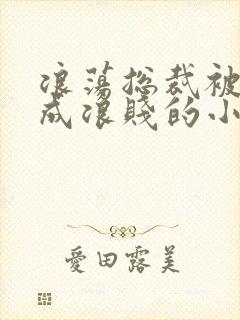 浪蕩總裁被
成浪賤的小
愛田露美